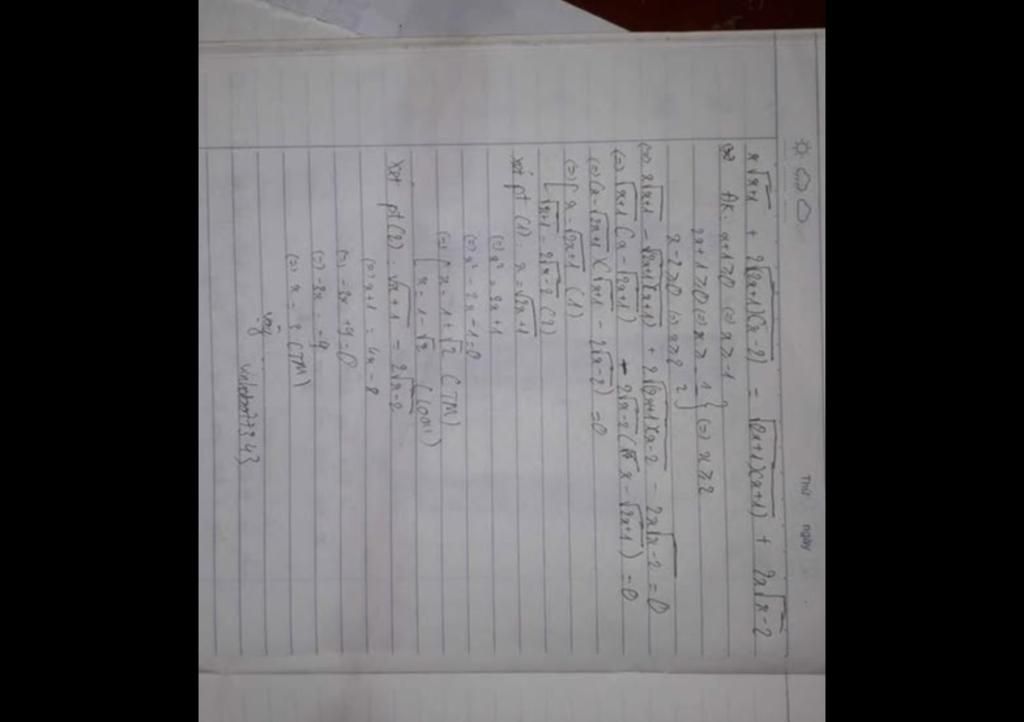 Thứ ngày
x√x+1 + 2√(2x+1)(x-2) = √(2x+1)(x+1) + 2x√x-2
ĐK: x+1 ≥ 0 (=) x ≥ -1
2x+1 ≥ 0 (=) x ≥ -1/2 } (=) x ≥ 2
x-2 ≥ 0 (=) x ≥ 2
(=) x√x+1 - √(2x+1)(x+1) + 2√(2x+1)(x-2 - 2x√x-2 = 0
(=) √x+1 (x - √2x+1) - 2√x-2 (x - √2x+1) = 0
(=) (x - √2x+1)(√x+1 - 2√x-2) = 0
(=) [ x = √2x+1 (1)
[ √x+1 = 2√x-2 (2)
xét pt (1): x = √2x+1
(=) x² = 2x+1
(=) x² - 2x - 1 = 0
(=) [ x = 1+√2 (TM)
[ x = 1-√2
xét pt (2): √x+1 = 2√x-2
(=) x+1 = 4x-8
(=) -3x+9=0
(=) -3x = -9
(=) x = 3 (TM)
vậy